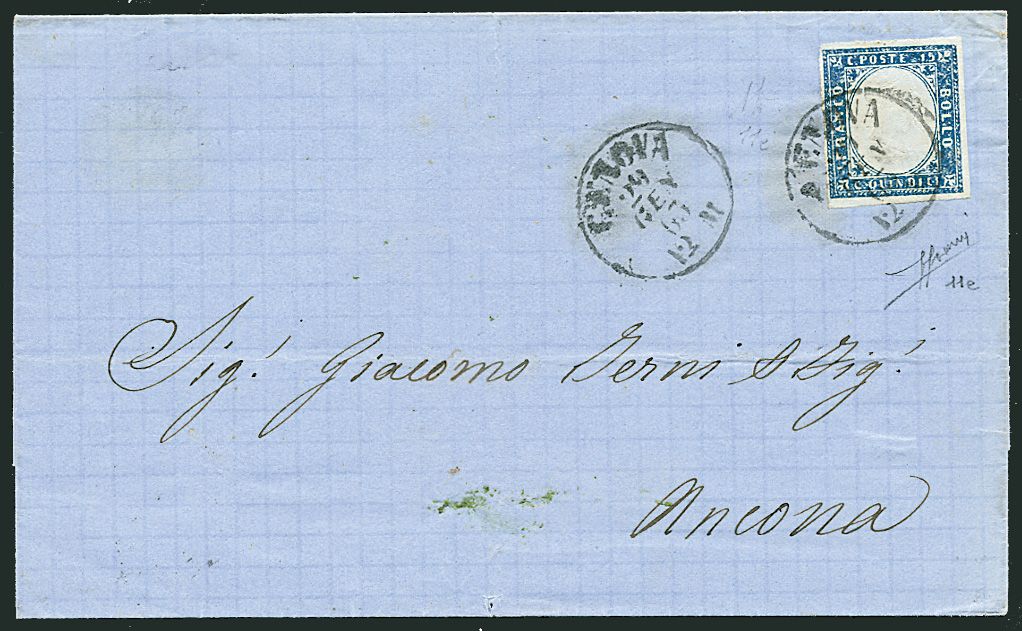 C. POSTE 15
FRANCO
BOLLO
C. QUINDICI
GENOVA
29
GEN
63
12 M
GENOVA
12
11e
11e
Sig.' Giacomo Terni & Fig.i
Ancona